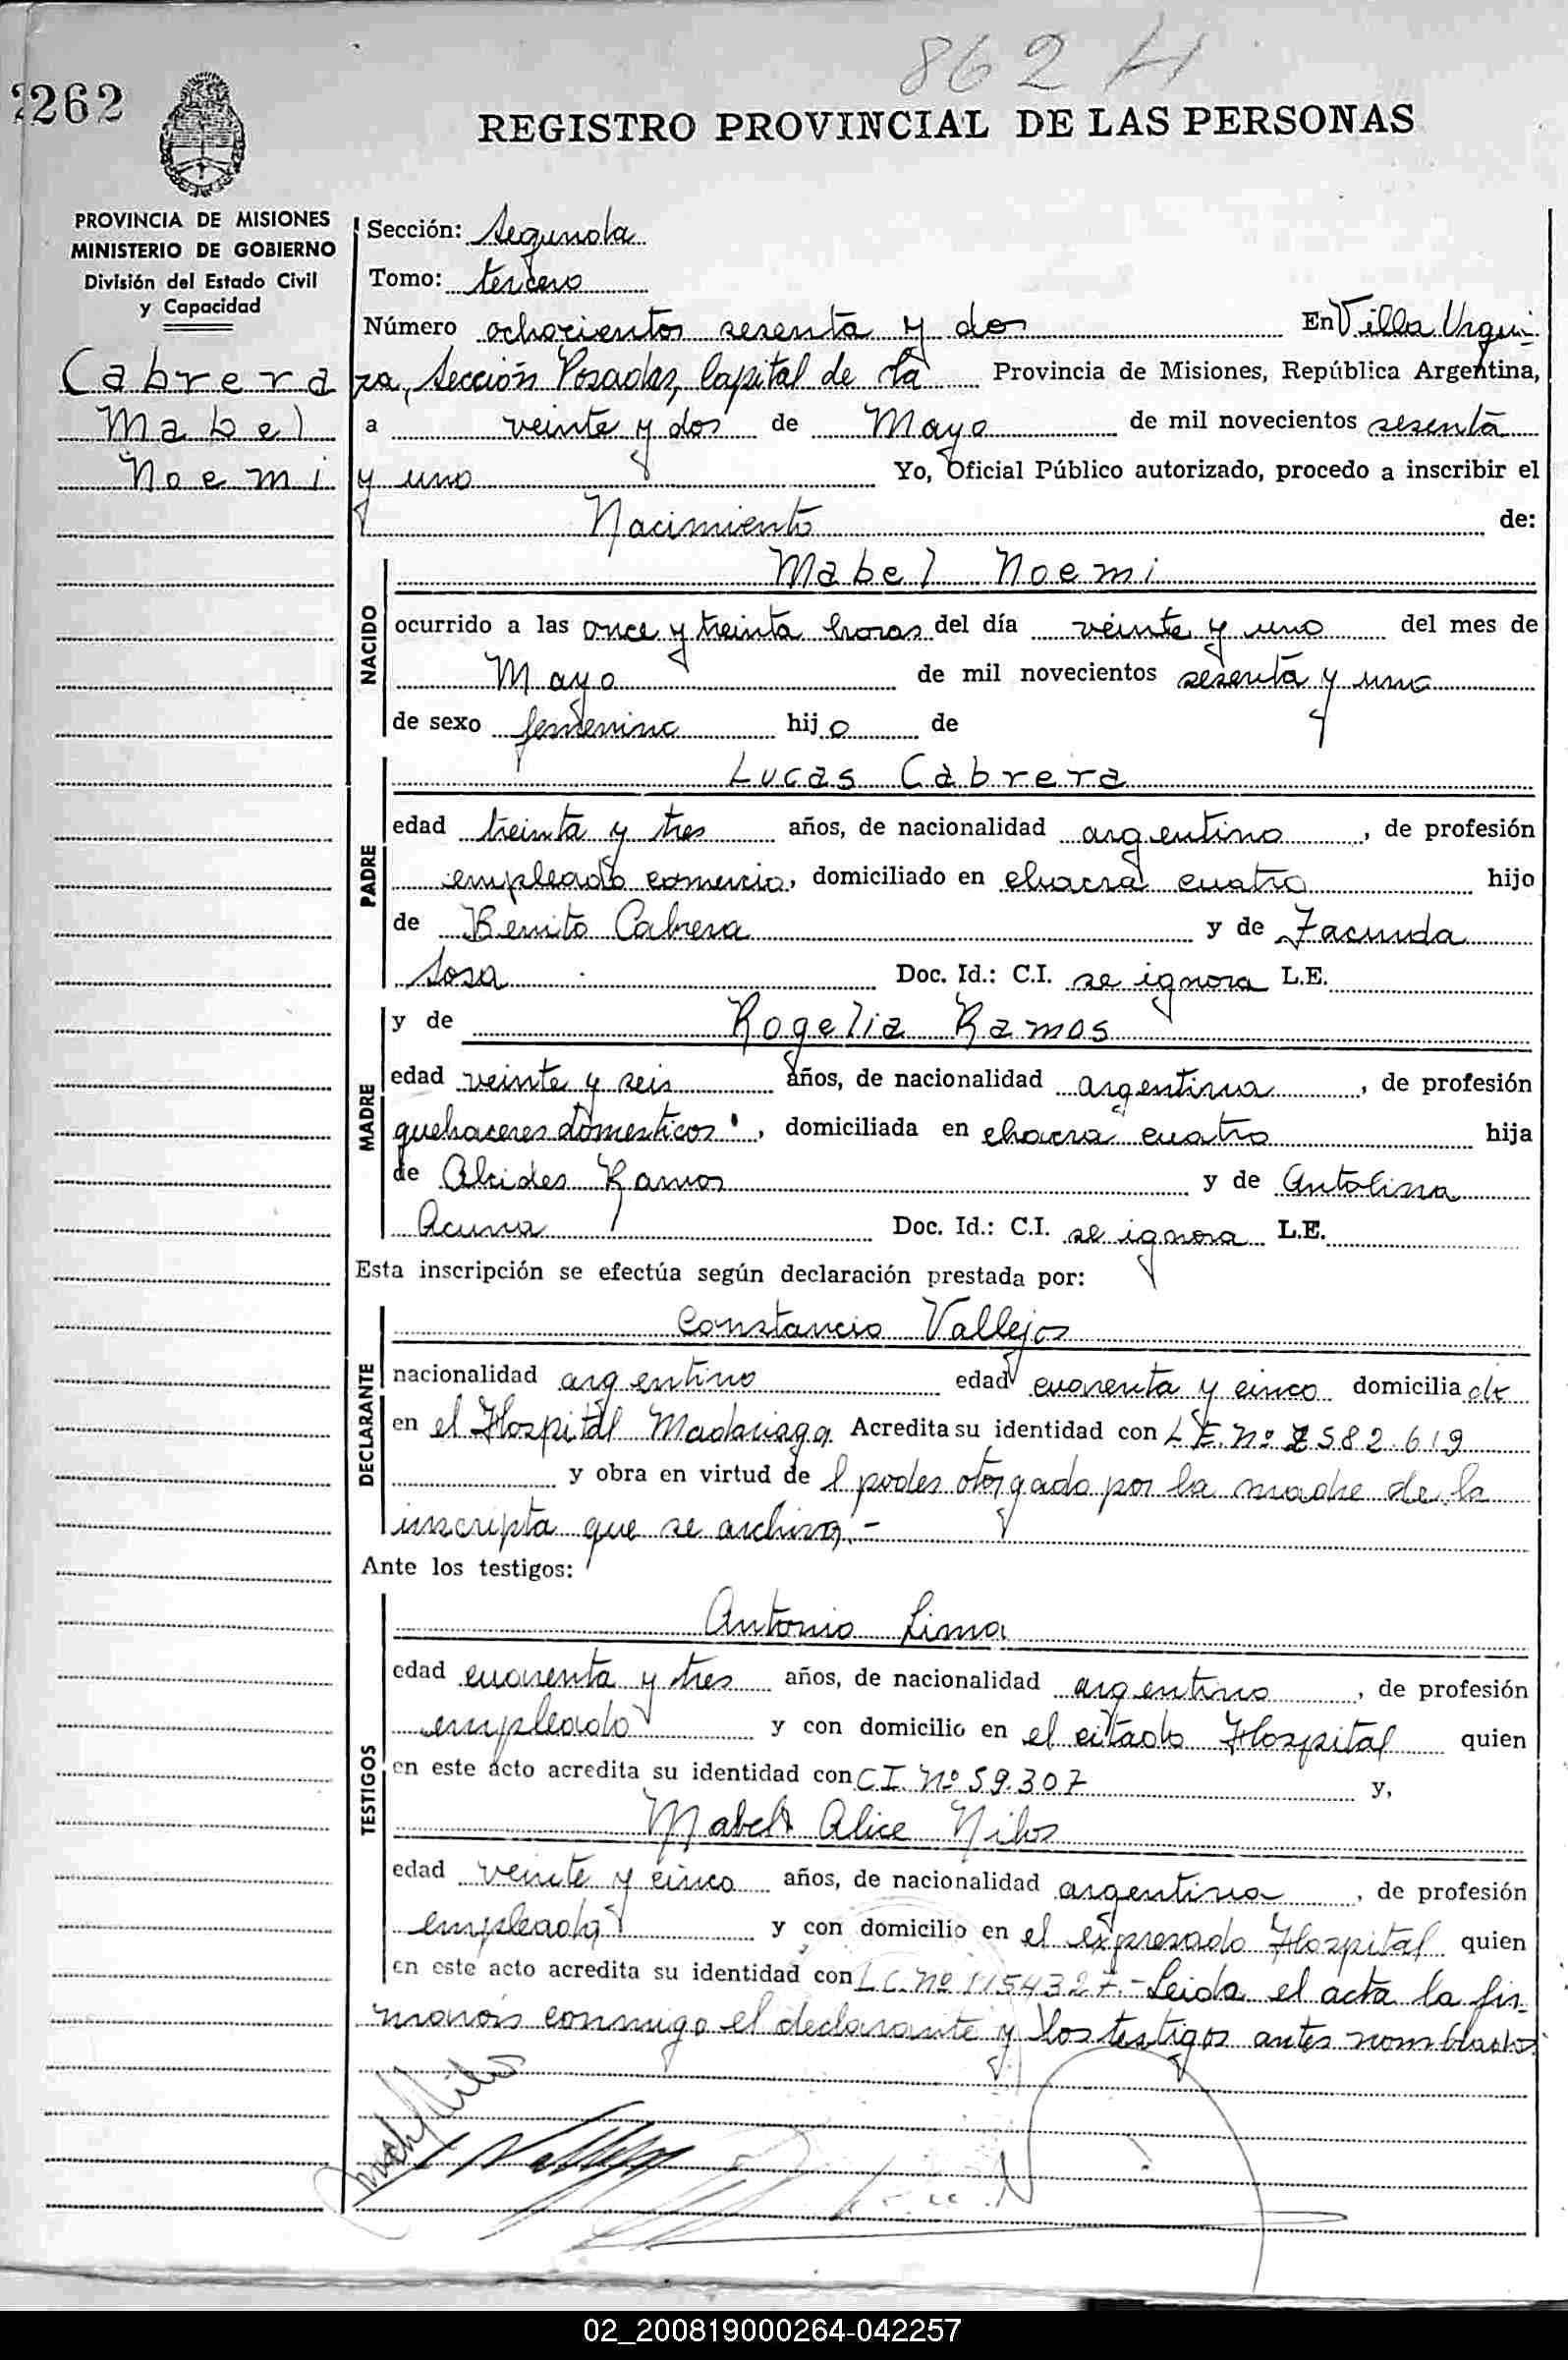 862 H
2262
REGISTRO PROVINCIAL DE LAS PERSONAS
PROVINCIA DE MISIONES
MINISTERIO DE GOBIERNO
División del Estado Civil
y Capacidad
Cabrera
Mabel
Noemi
Sección: Segunda
Tomo: tercero
Número ochocientos sesenta y dos En Villa Urqui-
za, Sección Posadas, Capital de la Provincia de Misiones, República Argentina,
a veinte y dos de Mayo de mil novecientos sesenta
y uno Yo, Oficial Público autorizado, procedo a inscribir el
Nacimiento de:
NACIDO
Mabel Noemi
ocurrido a las once y treinta horas del día veinte y uno del mes de
Mayo de mil novecientos sesenta y uno
de sexo femenino hijo de
PADRE
Lucas Cabrera
edad treinta y tres años, de nacionalidad argentino, de profesión
empleado comercio, domiciliado en chacra cuatro hijo
de Benito Cabrera y de Facunda
Sosa Doc. Id.: C.I. se ignora L.E.
MADRE
y de Rogelia Ramos
edad veinte y seis años, de nacionalidad argentina, de profesión
quehaceres domesticos, domiciliada en chacra cuatro hija
de Alcides Ramos y de Antolina
Acuna Doc. Id.: C.I. se ignora L.E.
Esta inscripción se efectúa según declaración prestada por:
DECLARANTE
Constancio Vallejos
nacionalidad argentino edad cuarenta y cinco domicilia do
en el Hospital Madariaga Acredita su identidad con L.E. Nº 582.619
y obra en virtud de l poder otorgado por la madre de la
inscripta que se archiva.-
Ante los testigos:
TESTIGOS
Antonio Lima
edad cuarenta y tres años, de nacionalidad argentino, de profesión
empleado y con domicilio en el citado Hospital quien
en este acto acredita su identidad con C.I. Nº 59.307 y,
Mabel Alice
edad veinte y cinco años, de nacionalidad argentina, de profesión
empleada y con domicilio en el expresado Hospital quien
en este acto acredita su identidad con L.C. Nº 1154327.- Leida el acta la fir-
maron conmigo el declarante y los testigos antes nombrados.
02_200819000264-042257